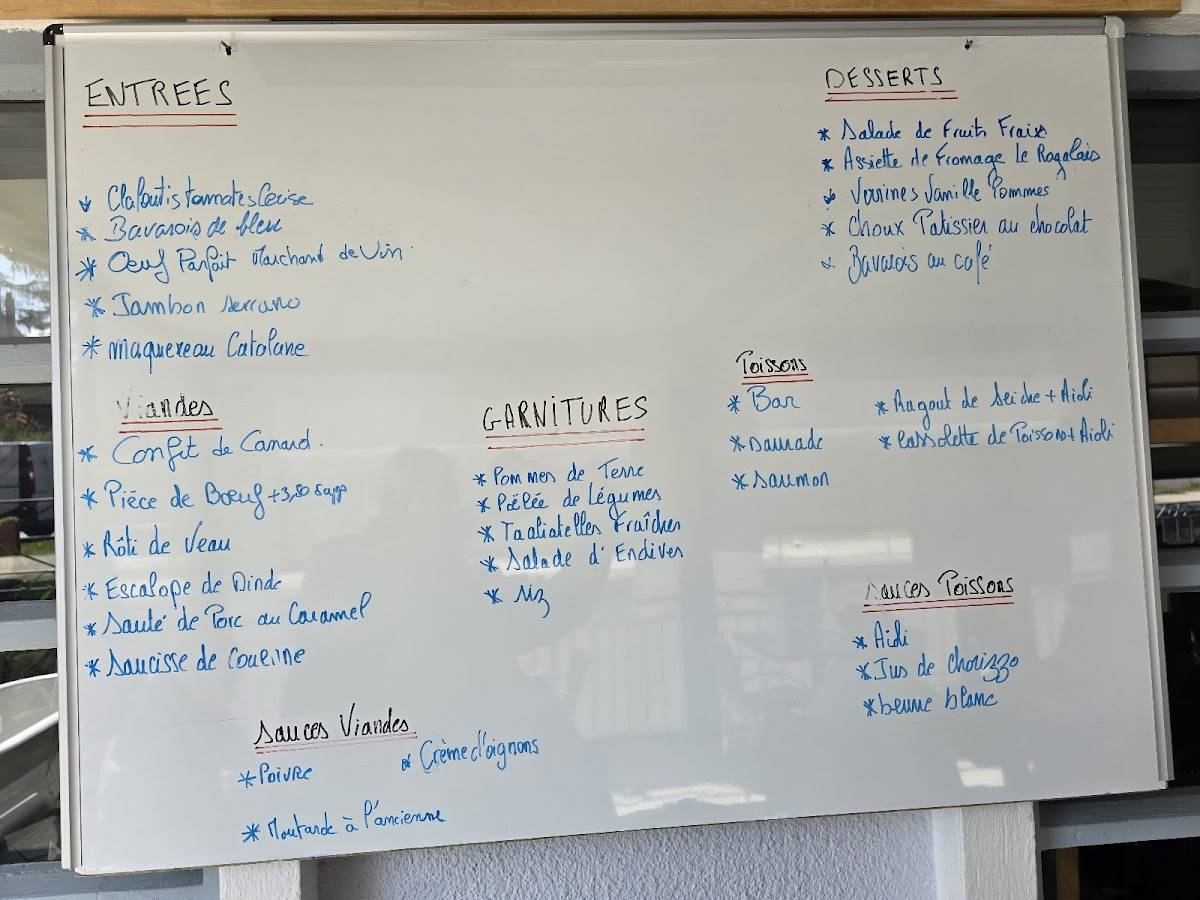 ENTREES
* Clafoutis tomates Cerise
* Bavarois de bleu
* Oeuf Parfait Marchand de Vin
* Jambon serrano
* maquereau Catalane
Viandes
* Confit de Canard.
* Pièce de Boeuf +3,50 supp
* Rôti de Veau
* Escalope de Dinde
* Sauté de Porc au Caramel
* Saucisse de Couenne
Sauces Viandes
* Poivre
* Crème d'oignons
* Moutarde à l'ancienne
GARNITURES
* Pommes de Terre
* Poêlée de Légumes
* Tagliatelles Fraîches
* Salade d'Endives
* riz
DESSERTS
* Salade de Fruits Frais
* Assiette de Fromage Le Ragalais
* Verrines Vanille Pommes
* Choux Patissier au chocolat
* Bavarois au café
Poissons
* Bar
* daurade
* saumon
* Ragout de Seiche + Aioli
* Cassolette de Poissons + Aioli
Sauces Poissons
* Aioli
* Jus de chorizzo
* beurre blanc